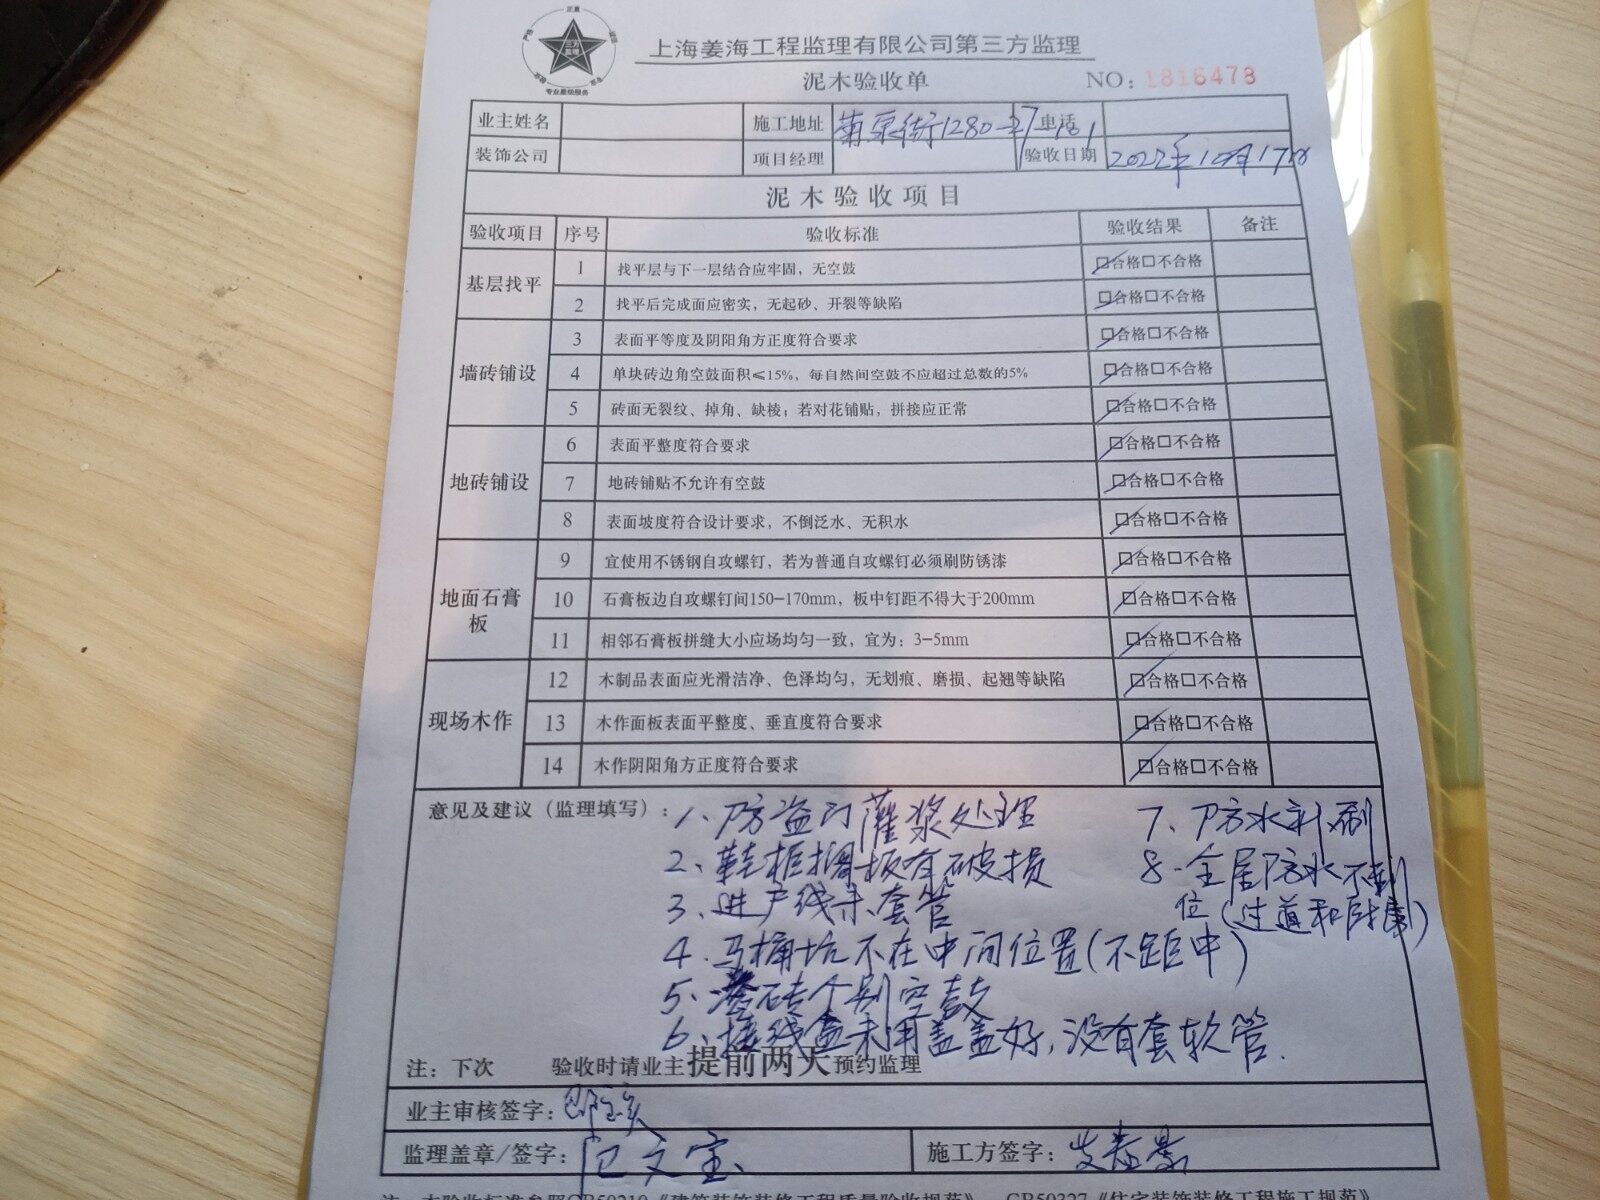 正直
专业星级服务
上海姜海工程监理有限公司第三方监理
泥木验收单 NO：1816478
业主姓名 施工地址 1280-27-101 电话
装饰公司 项目经理 验收日期 2022年10月17日
泥木验收项目
验收项目 序号 验收标准 验收结果 备注
基层找平
1 找平层与下一层结合应牢固，无空鼓 ☑合格□不合格
2 找平后完成面应密实，无起砂、开裂等缺陷 ☑合格□不合格
墙砖铺设
3 表面平等度及阴阳角方正度符合要求 ☑合格□不合格
4 单块砖边角空鼓面积≤15%，每自然间空鼓不应超过总数的5% ☑合格□不合格
5 砖面无裂纹、掉角、缺棱；若对花铺贴，拼接应正常 ☑合格□不合格
地砖铺设
6 表面平整度符合要求 ☑合格□不合格
7 地砖铺贴不允许有空鼓 ☑合格□不合格
8 表面坡度符合设计要求，不倒泛水、无积水 ☑合格□不合格
地面石膏板
9 宜使用不锈钢自攻螺钉，若为普通自攻螺钉必须刷防锈漆 ☑合格□不合格
10 石膏板边自攻螺钉间150-170mm，板中钉距不得大于200mm ☑合格□不合格
11 相邻石膏板拼缝大小应场均匀一致，宜为：3-5mm ☑合格□不合格
现场木作
12 木制品表面应光滑洁净、色泽均匀，无划痕、磨损、起翘等缺陷 ☑合格□不合格
13 木作面板表面平整度、垂直度符合要求 ☑合格□不合格
14 木作阴阳角方正度符合要求 ☑合格□不合格
意见及建议（监理填写）：1、防盗门灌浆处理
2、鞋柜搁板有破损
3、进户线未套管
4、马桶坑不在中间位置(不距中)
5、砖个别空鼓
6、接线盒未用盖盖好，没有套软管.
7、防水补刷
8、全屋防水不到
位(过道和厨房)
注：下次 验收时请业主提前两天预约监理
业主审核签字：
监理盖章/签字：范文宝 施工方签字：
注：本验收标准参照GB50210《建筑装饰装修工程质量验收规范》、GB50327《住宅装饰装修工程施工规范》